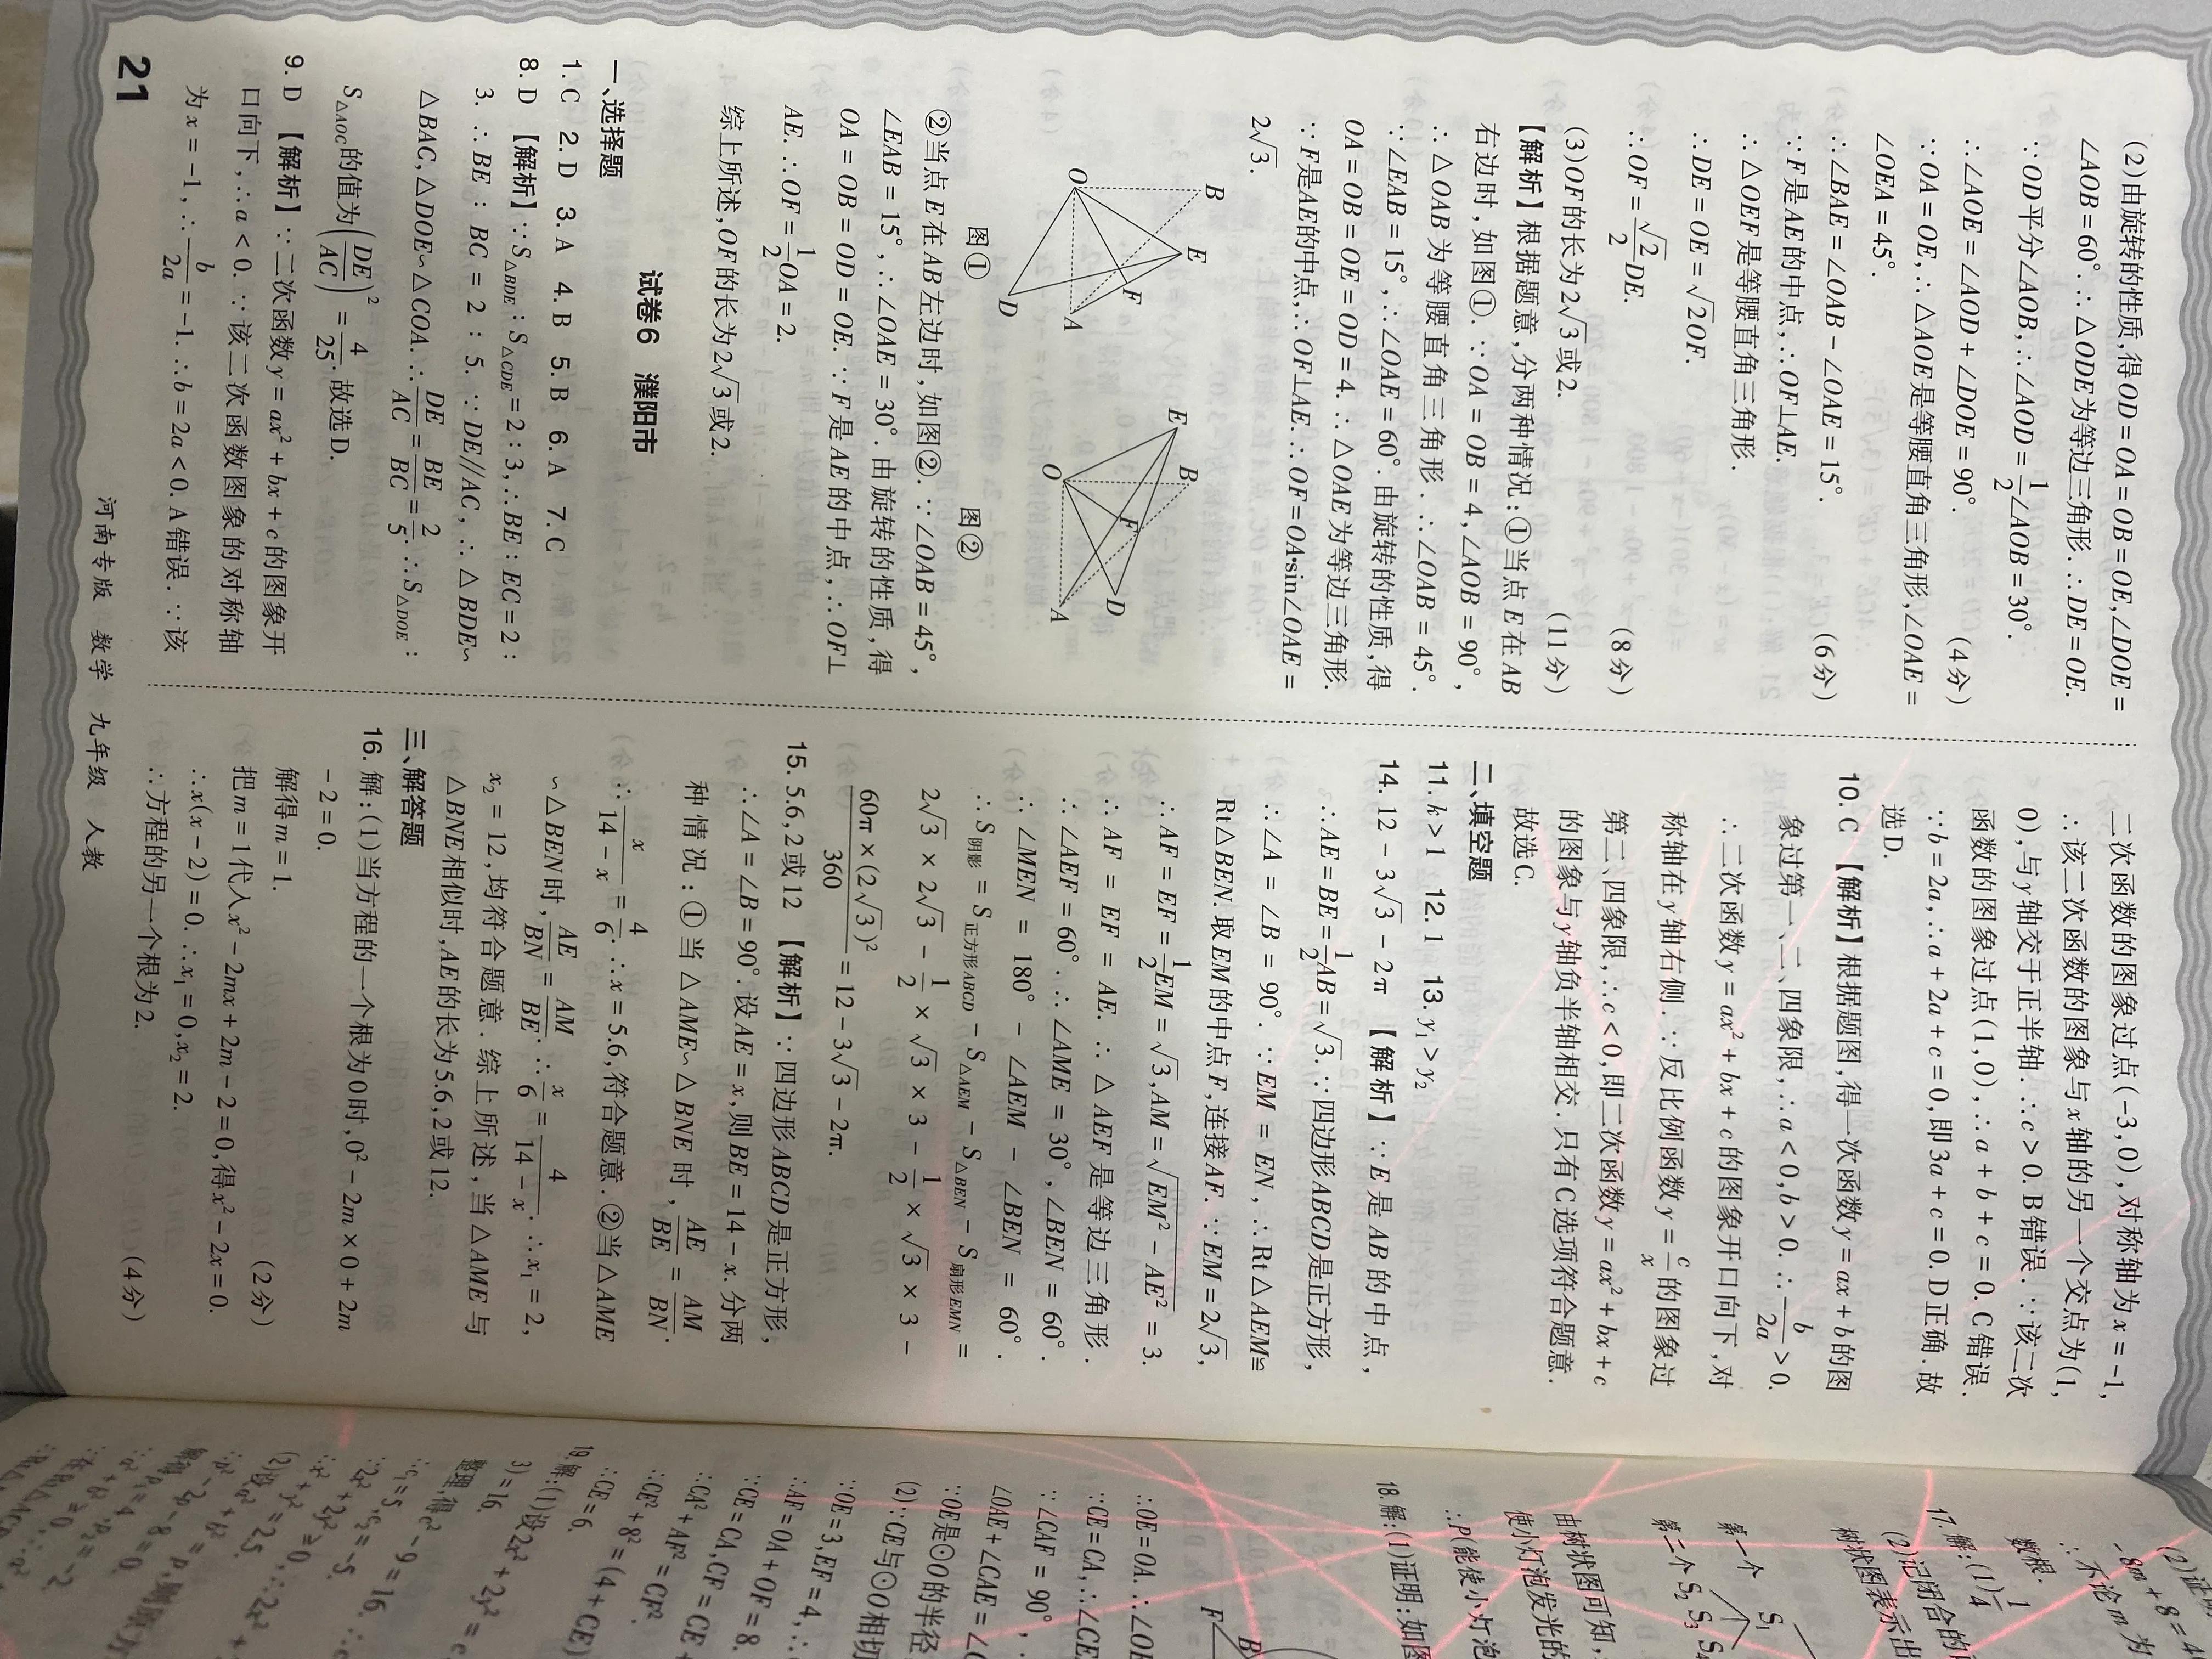 (2)由旋转的性质,得OD=OA=OB=OE,∠DOE=
∠AOB=60°.∴△ODE为等边三角形.∴DE=OE.
∵OD平分∠AOB,∴∠AOD=1/2∠AOB=30°.
∴∠AOE=∠AOD+∠DOE=90°. (4分)
∵OA=OE,∴△AOE是等腰直角三角形,∠OAE=
∠OEA=45°.
∴∠BAE=∠OAB-∠OAE=15°. (6分)
∵F是AE的中点,∴OF⊥AE.
∴△OEF是等腰直角三角形.
∴DE=OE=√2OF.
∴OF=√2/2DE. (8分)
(3)OF的长为2√3或2. (11分)
【解析】根据题意,分两种情况:①当点E在AB
右边时,如图①.∵OA=OB=4,∠AOB=90°,
∴△OAB为等腰直角三角形.∴∠OAB=45°.
∵∠EAB=15°,∴∠OAE=60°.由旋转的性质,得
OA=OB=OE=OD=4.∴△OAE为等边三角形.
∵F是AE的中点,∴OF⊥AE.∴OF=OA·sin∠OAE=
2√3.
B
E
F
O
A
D
图①
E
B
F
O
D
A
图②
②当点E在AB左边时,如图②.∵∠OAB=45°,
∠EAB=15°,∴∠OAE=30°.由旋转的性质,得
OA=OB=OD=OE.∵F是AE的中点,∴OF⊥
AE.∴OF=1/2OA=2.
综上所述,OF的长为2√3或2.
试卷6 濮阳市
一、选择题
1.C 2.D 3.A 4.B 5.B 6.A 7.C
8.D 【解析】∵S△BDE:S△CDE=2:3,∴BE:EC=2:
3.∴BE:BC=2:5.∵DE//AC,∴△BDE∽
△BAC,△DOE∽△COA.∴DE/AC=BE/BC=2/5.∴S△DOE:
S△AOC的值为(DE/AC)²=4/25.故选D.
9.D 【解析】∵二次函数y=ax²+bx+c的图象开
口向下,∴a<0.∵该二次函数图象的对称轴
为x=-1,∴-b/2a=-1.∴b=2a<0.A错误.∵该
二次函数的图象过点(-3,0),对称轴为x=-1,
∴该二次函数的图象与x轴的另一个交点为(1,
0),与y轴交于正半轴.∴c>0.B错误.∵该二次
函数的图象过点(1,0),∴a+b+c=0.C错误.
∵b=2a,∴a+2a+c=0,即3a+c=0.D正确.故
选D.
10.C 【解析】根据题图,得一次函数y=ax+b的图
象过第一、二、四象限,∴a<0,b>0.∴-b/2a>0.
∴二次函数y=ax²+bx+c的图象开口向下,对
称轴在y轴右侧.∵反比例函数y=c/x的图象过
第二、四象限,∴c<0,即二次函数y=ax²+bx+c
的图象与y轴负半轴相交.只有C选项符合题意.
故选C.
二、填空题
11.k>1 12.1 13.y₁>y₂
14.12-3√3-2π 【解析】∵E是AB的中点,
∴AE=BE=1/2AB=√3.∵四边形ABCD是正方形,
∴∠A=∠B=90°.∵EM=EN,∴Rt△AEM≌
Rt△BEN.取EM的中点F,连接AF.∵EM=2√3,
∴AF=EF=1/2EM=√3,AM=√(EM²-AE²)=3.
∴AF=EF=AE.∴△AEF是等边三角形.
∴∠AEF=60°.∴∠AME=30°,∠BEN=60°.
∴∠MEN=180°-∠AEM-∠BEN=60°.
∴S阴影=S正方形ABCD-S△AEM-S△BEN-S扇形EMN=
2√3×2√3-1/2×√3×3-1/2×√3×3-
60π×(2√3)²/360=12-3√3-2π.
15.5.6,2或12 【解析】∵四边形ABCD是正方形,
∴∠A=∠B=90°.设AE=x,则BE=14-x.分两
种情况:①当△AME∽△BNE时,AE/BE=AM/BN.
∴x/(14-x)=4/6.∴x=5.6,符合题意.②当△AME
∽△BEN时,AE/BN=AM/BE.∴x/6=4/(14-x).∴x₁=2,
x₂=12,均符合题意.综上所述,当△AME与
△BNE相似时,AE的长为5.6,2或12.
三、解答题
16.解:(1)当方程的一个根为0时,0²-2m×0+2m
-2=0.
解得m=1. (2分)
把m=1代入x²-2mx+2m-2=0,得x²-2x=0.
∴x(x-2)=0.∴x₁=0,x₂=2.
∴方程的另一个根为2. (4分)
河南专版 数学 九年级 人教
21
-8m+8=4
∴不论m为
数根.
17.解:(1)1/4
(2)记闭合的
树状图表示出
第一个 S₁
第二个 S₂ S₃ S₄
由树状图可知,
使小灯泡发光的
∴P(能使小灯泡
18.解:(1)证明:如图
F
B
∴OE=OA.∴∠OE
∵CE=CA,∴∠CE
∵∠CAF=90°,
∠OAE+∠CAE=∠
∵OE是⊙O的半径
(2)∵CE与⊙O相切
∵OE=3,EF=4,∴
∴AF=OA+OF=8.
∵CE=CA,CF=CE+
∴CA²+AF²=CF².
∴CE²+8²=(4+CE)
∴CE=6.
19.解:(1)设2x²+2y²=c
3)=16.
整理,得c²-9=16.
∴c₁=5,c₂=-5.
∵2x²+2y²≥0,∴2x²+